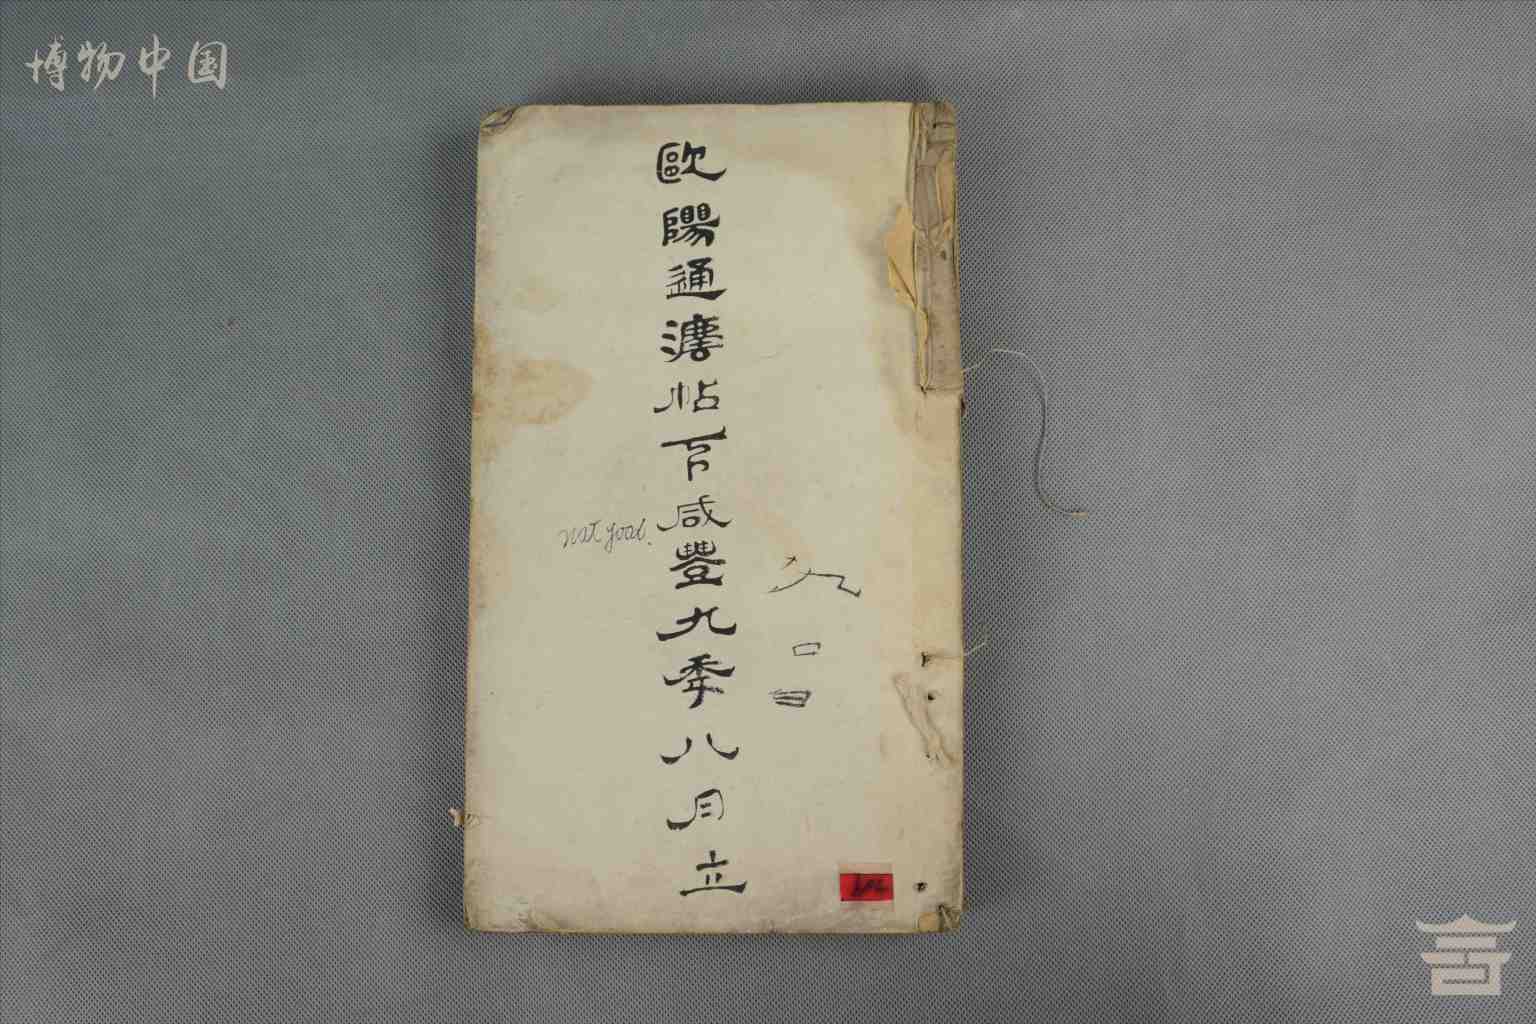 博物中国
歐陽通灋帖下咸豐九年八月立
not good.